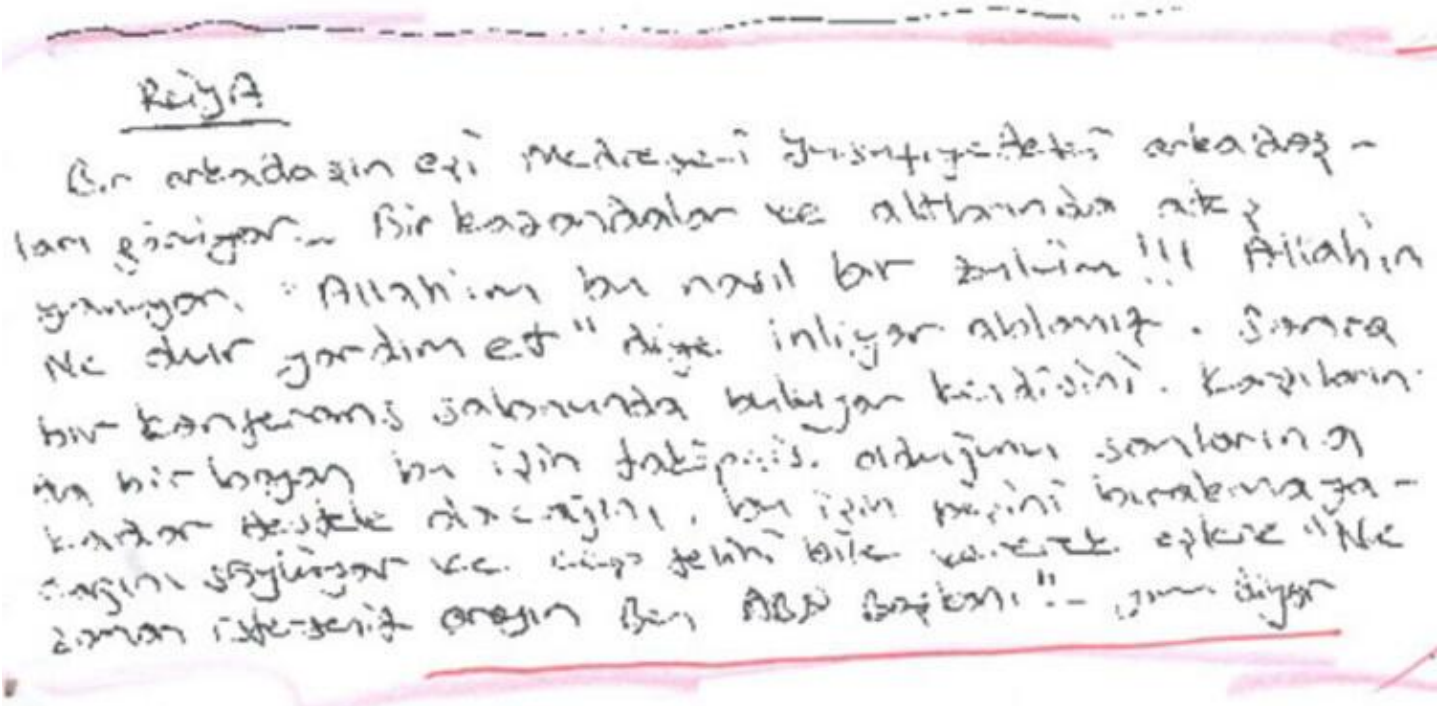 Rüya
Bir arkadaşın eşi Medrese-i Yusufiyedeki arkadaş-
ları görüyor... Bir kazandalar ve altlarında ateş
yanıyor. "Allah'ım bu nasıl bir zulüm!!! Allahın
Ne olur yardım et" diye inliyor ablamız. Sonra
bir konferans salonunda buluyor kendisini. Kapıların
da bir bayan bu işin takipçisi olduğunu sonlarına
kadar destek olacağını, bu işin peşini bırakmaya-
cağını söylüyor ve cep telini bile vererek eşlere "Ne
zaman isterseniz arayın Ben ABD Başkanı"- diyor